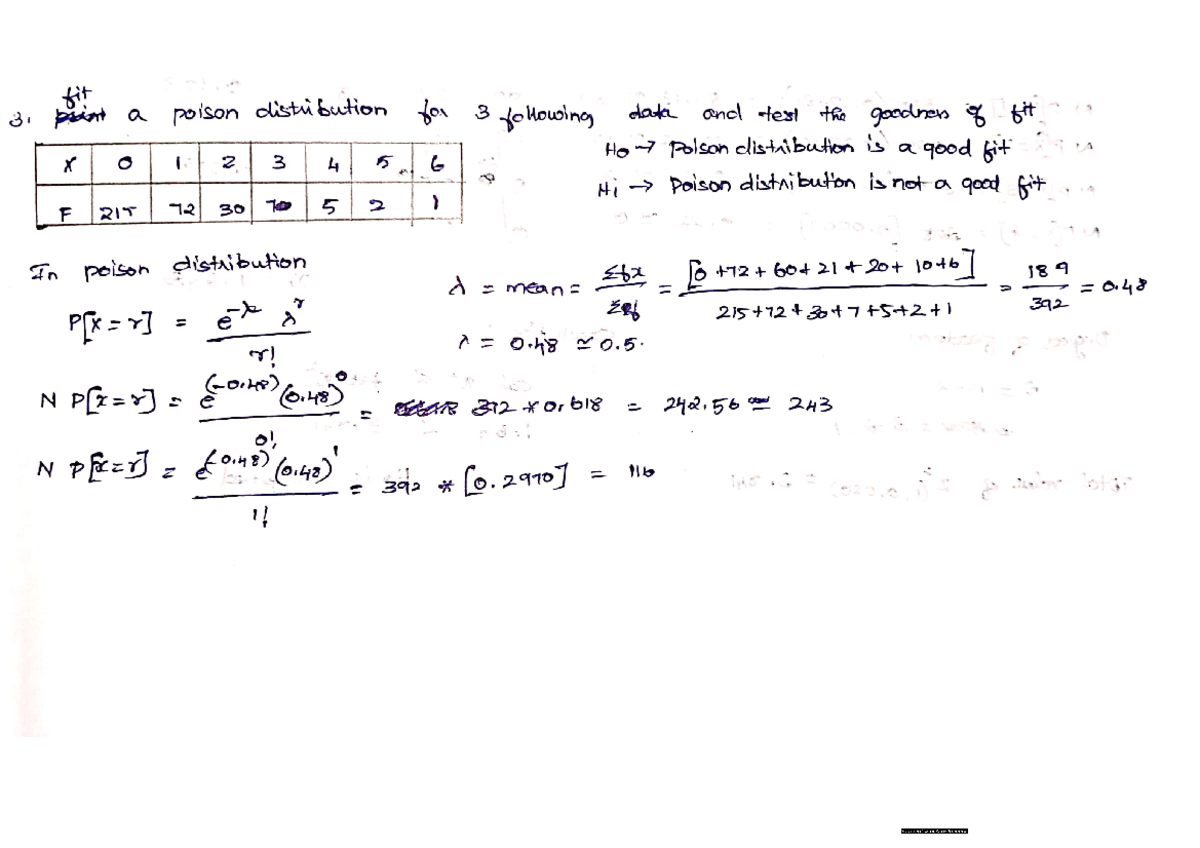 fit
3. a poison distribution for 3 following data and test the goodness of fit
X 0 1 2 3 4 5 6
F 215 72 30 5 2 1
H0 → Poison distribution is a good fit
Hi → Poison distribution is not a good fit
In poison distribution
P[x=r] = e^-λ λ^r / r!
λ = mean = Σfx / Σf = [0+72+60+21+20+10+6] / 215+72+30+7+5+2+1 = 189 / 392 = 0.48
λ = 0.48 ≃ 0.5.
N P[x=r] = e^(-0.48) (0.48)^0 / 0! = 392 * 0.618 = 242.56 ≃ 243
N P[x=r] = e^(-0.48) (0.48)^1 / 1! = 392 * [0.2970] = 116